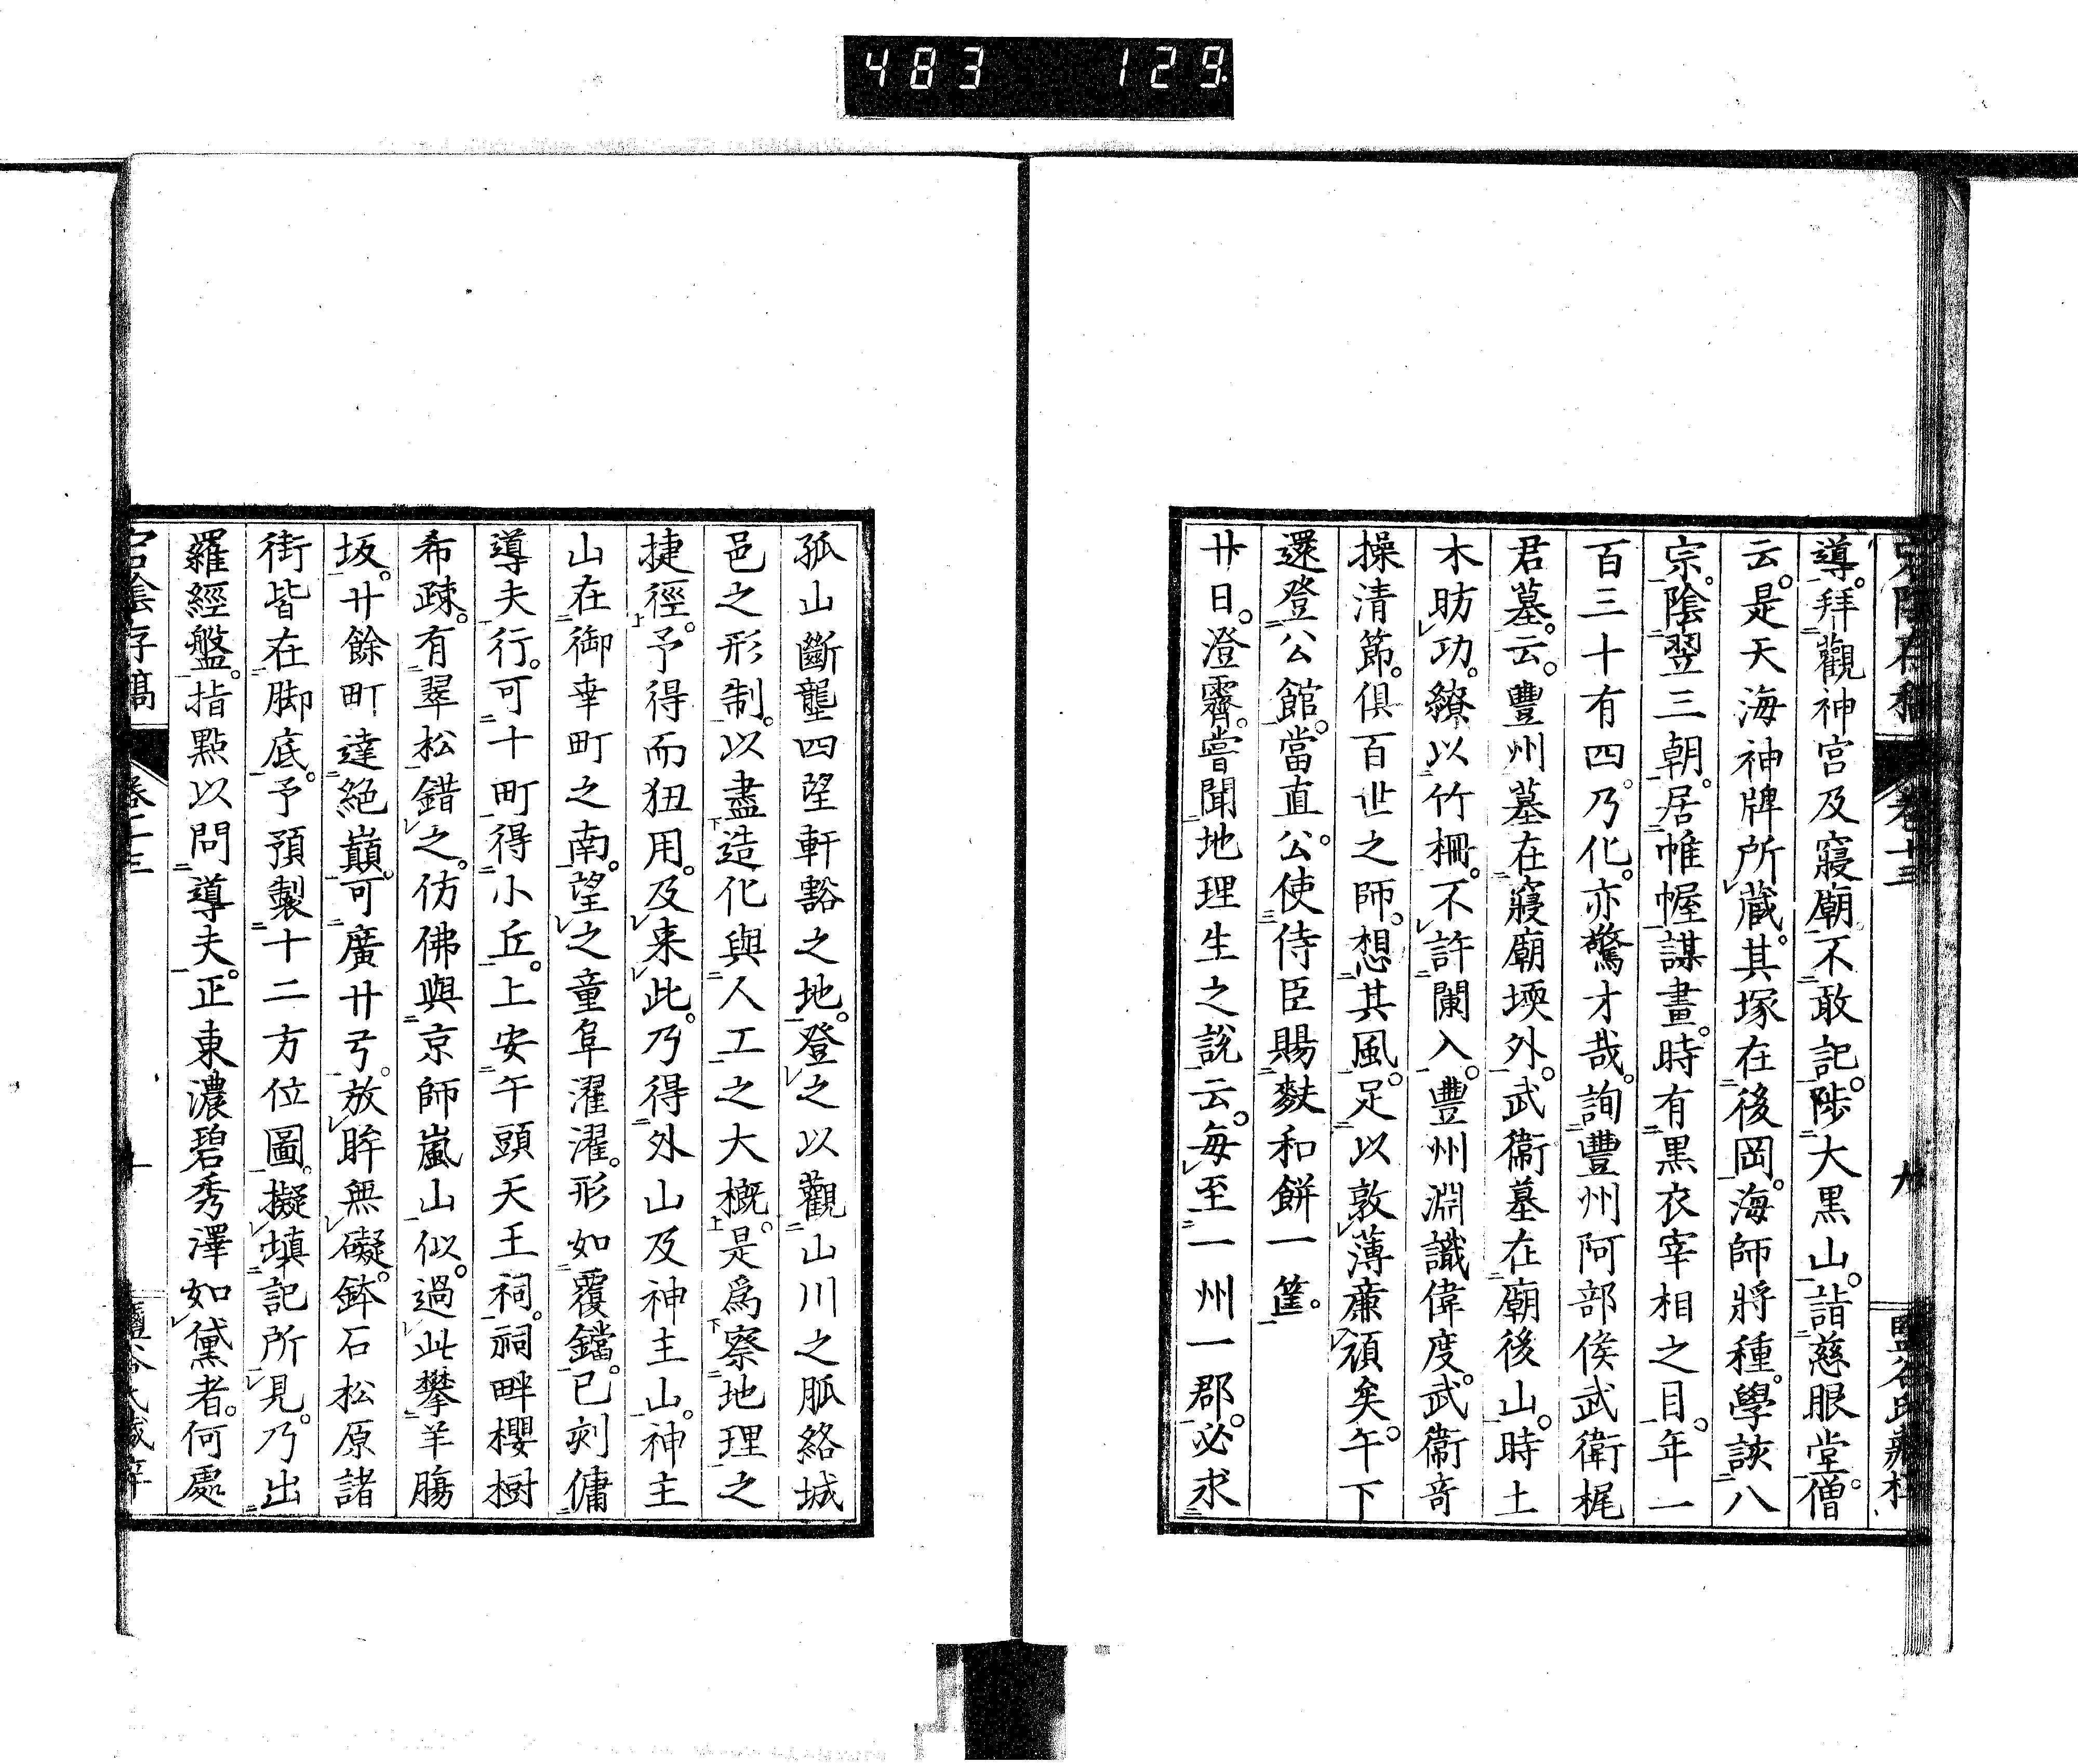 483 129
宕陰存稿 卷十三 九
導。拜觀神宮及寢廟。不敢記。陟大黒山。詣慈眼堂。僧
云。是天海神牌所藏。其塚在後岡。海師將種。學該八
宗。陰翌三朝。居帷幄謀畫。時有黒衣宰相之目。年一
百三十有四。乃化。亦驚才哉。詢豐州阿部侯武衛梶
君墓。云。豐州墓在寢廟堧外。武衛墓在廟後山。時土
木昉功。繚以竹柵。不許闌入。豐州淵識偉度。武衛竒
操清節。俱百世之師。想其風。足以敦薄廉頑矣。午下
還登公館。當直公。使侍臣賜麩和餅一篚。
廿日。澄霽。嘗聞地理生之説云。毎至一州一郡。必求
孤山斷壟四望軒豁之地。登之以觀山川之脈絡城
邑之形制。以盡造化與人工之大概。是爲察地理之
捷徑。予得而狃用。及来此。乃得外山及神主山。神主
山在御幸町之南。望之童阜濯濯。形如覆鐺。已刻傭
導夫行。可十町得小丘。上安午頭天王祠。祠畔櫻樹
希疎。有翠松錯之。仿佛與京師嵐山似。過此攀羊膓
坂。廿餘町達絶巓。可廣廿弓。放眸無礙。鉢石松原諸
街皆在脚底。予預製十二方位圖。擬塡記所見。乃出
羅經盤。指點以問導夫。正東濃碧秀澤如黛者。何處
宕陰存稿 卷十三 十